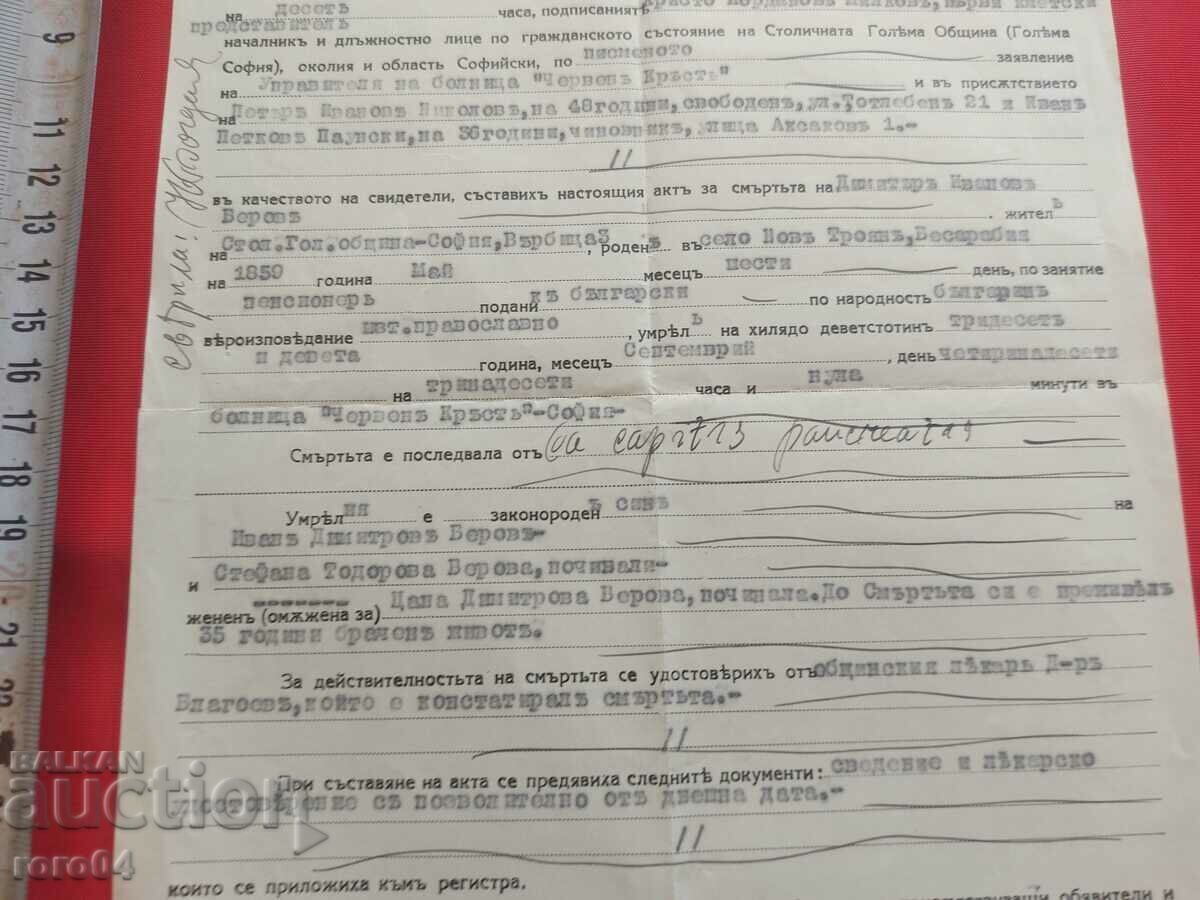 на десеть часа, подписаниятъ Христо Йордановъ
представитель
началникъ и длъжностно лице по гражданското състояние на Столичната Голѣма Община (Голѣма
София), околия и область Софийски, по писменото заявление
на Управителя на болница "Червень Кръсть" и въ присѫтствието
на Петъръ Ивановъ Николовъ, на 48 години, свободенъ, ул. Тотлебенъ 21 и Иванъ
Петковъ Паунски, на 36 години, чиновникъ, улица Аксаковъ 1.-
//
въ качеството на свидетели, съставихъ настоящия актъ за смъртьта на Димитъръ Ивановъ
Беровъ . жителъ
на Стол. Гол. община-София, Върбица 3 , роденъ въ село Новъ Троянъ, Бесарабия
на 1859 година Май месецъ шести день, по занятие
пенсионеръ подани къ български по народность българинъ
вѣроизповѣдание изт. православно , умрѣлъ на хилядо деветстотинъ тридесеть
и девета година, месецъ Септемврий , день четиринадесети
на тринадесети часа и нула минути въ
болница "Червенъ Кръсть"-София-
Смъртьта е последвала отъ
Умрѣлия е законороденъ синъ на
Иванъ Димитровъ Беровъ-
и Стефана Тодорова Берова, починали-
жененъ (омѫжена за) Цана Димитрова Берова, починала. До Смъртьта си е преживѣлъ
35 години браченъ животъ.
За действителностьта на смъртьта се удостовѣрихъ отъ общинския лѣкарь Д-ръ
Благоевъ, който е констатиралъ смъртьта.-
//
При съставяне на акта се предявиха следнитѣ документи: сведение и лѣкарско
удостовѣрение съ позволително отъ днешна дата.-
//
които се приложиха къмъ регистра.
обявители и
свѣрила!
9
11
12
13
14
15
16
17
18
19
21
BALKAN
auction
roro04